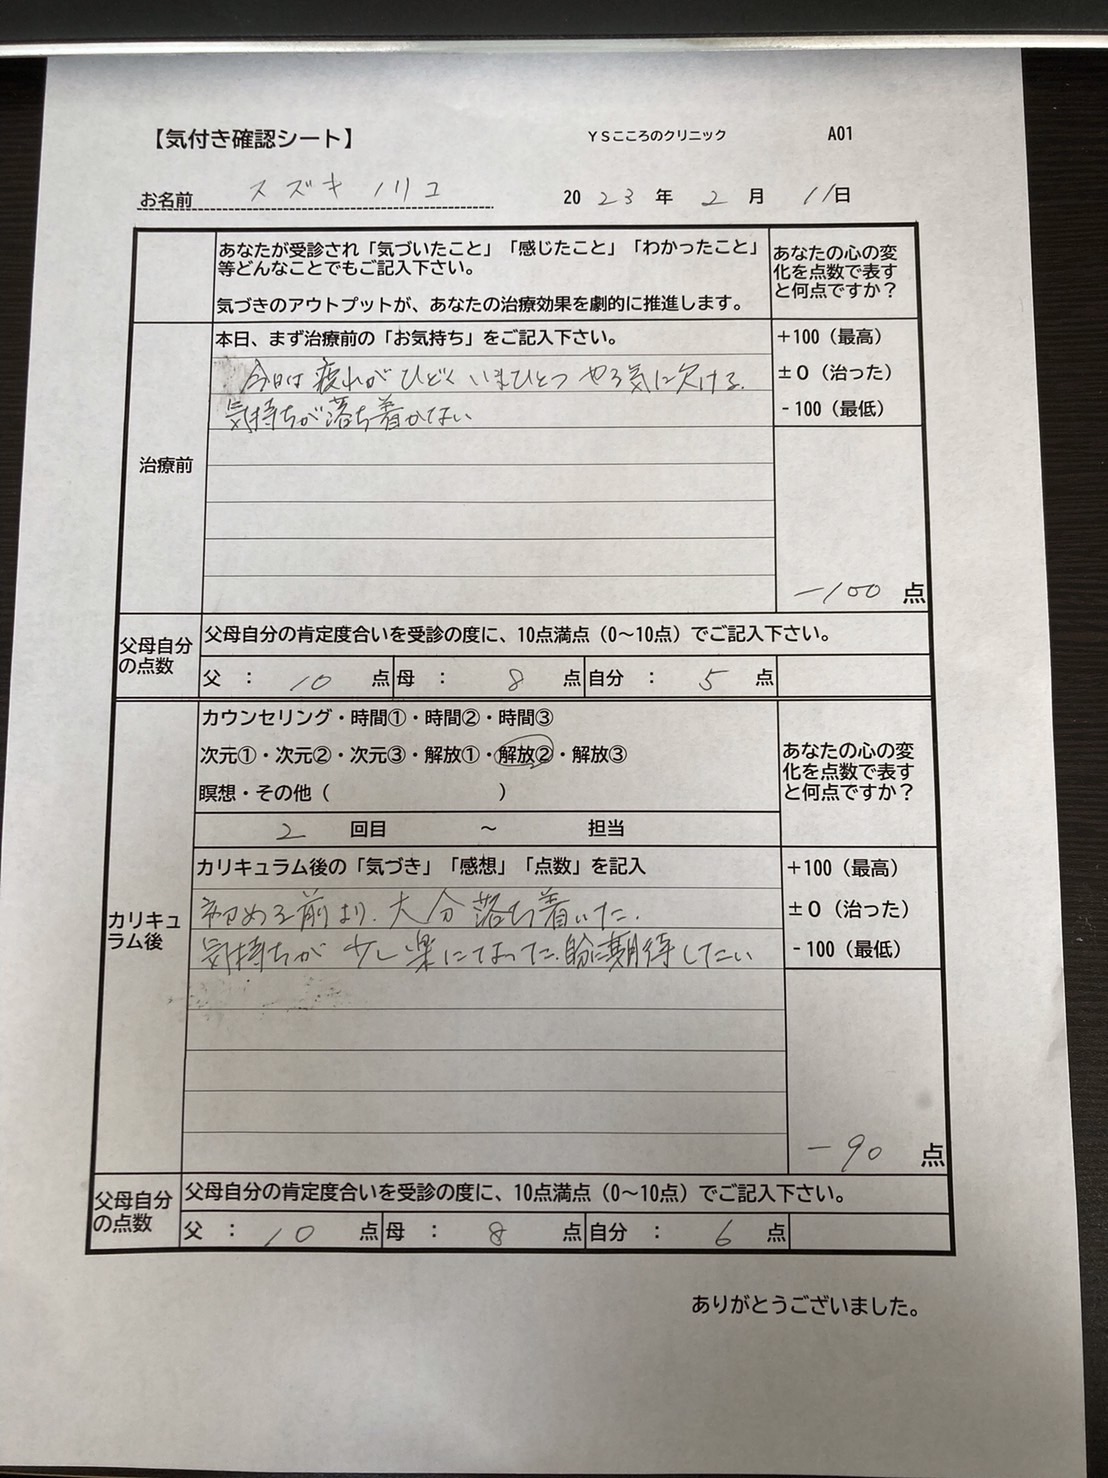 【気付き確認シート】 YSこころのクリニック A01
お名前 スズキノリコ 2023年2月11日
あなたが受診され「気づいたこと」「感じたこと」「わかったこと」
等どんなことでもご記入下さい。
気づきのアウトプットが、あなたの治療効果を劇的に推進します。
あなたの心の変
化を点数で表す
と何点ですか？
治療前
本日、まず治療前の「お気持ち」をご記入下さい。
今日は疲れがひどくいまひとつやる気に欠ける.
気持ちが落ち着かない
+100（最高）
±0（治った）
-100（最低）
-100点
父母自分
の点数
父母自分の肯定度合いを受診の度に、10点満点（0～10点）でご記入下さい。
父：10点 母：8点 自分：5点
カリキュ
ラム後
カウンセリング・時間①・時間②・時間③
次元①・次元②・次元③・解放①・解放②・解放③
瞑想・その他（ ）
2回目 ～ 担当
あなたの心の変
化を点数で表す
と何点ですか？
カリキュラム後の「気づき」「感想」「点数」を記入
初める前より.大分落ち着いた.
気持ちが少し楽になった.自分に期待したい
+100（最高）
±0（治った）
-100（最低）
-90点
父母自分
の点数
父母自分の肯定度合いを受診の度に、10点満点（0～10点）でご記入下さい。
父：10点 母：8点 自分：6点
ありがとうございました。